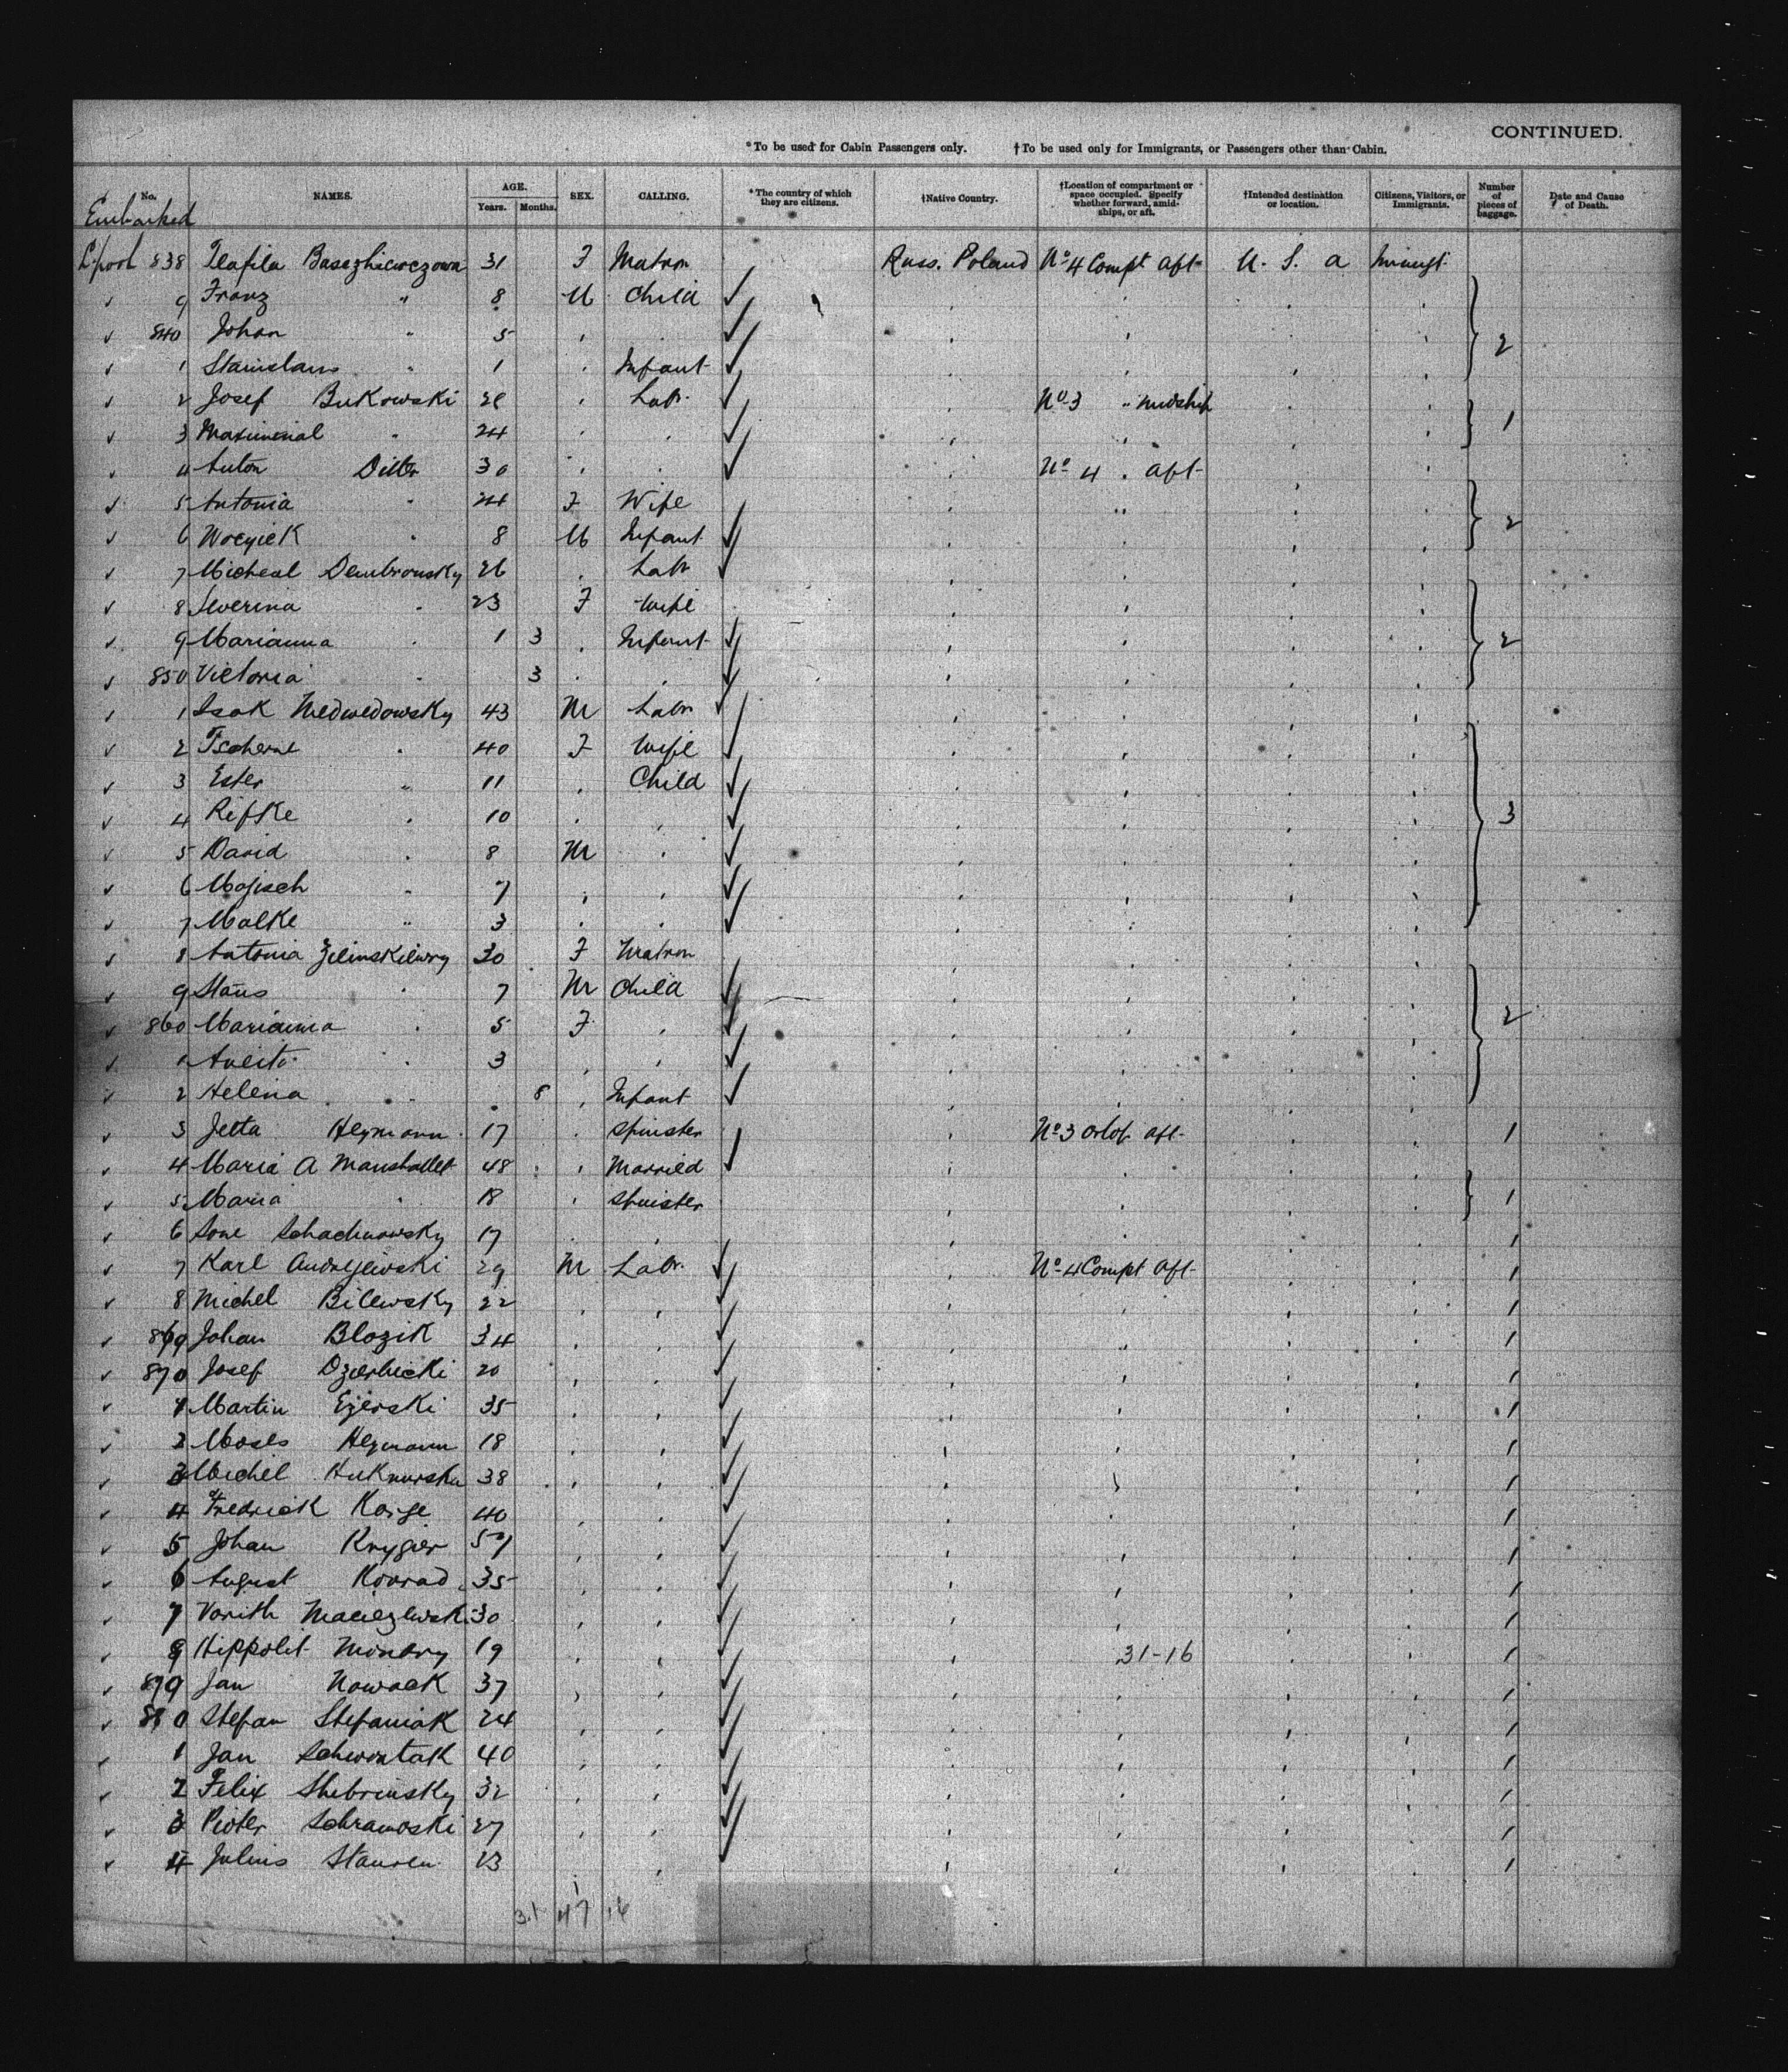 CONTINUED.
*To be used for Cabin Passengers only. †To be used only for Immigrants, or Passengers other than Cabin.
No. NAMES. AGE. Years. Months. SEX. CALLING. *The country of which they are citizens. †Native Country. †Location of compartment or space occupied. Specify whether forward, amidships, or aft. †Intended destination or location. Citizens, Visitors, or Immigrants. Number of pieces of baggage. Date and Cause of Death.
Embarked
L'pool 838 31 F Matron Russ. Poland No 4 Compt aft U. S. a
9 Franz " 8 M Child
840 Johan " 5
1 Stanislaus " 1 Infant 2
2 Josef Bukowski Labr No 3 " midship
3 " 24 1
4 Anton 30 No 4 . aft
5 Antonia " 24 F Wife 2
6 " 8 M Infant
7 Micheal Dembrousky 26 Labr
8 Severina 23 F Wife
9 Marianna 1 3 Infant 2
850 Victoria 3
1 Isak Medwedowsky 43 M Labr
2 Tscherne 40 F Wife
3 Ester " 11 Child
4 Rifke 10 3
5 David 8 M
6 Mojisch 7
7 Malke " 3
8 Antonia 30 F Matron
9 Stans 7 M Child
860 Marianna 5 F 2
1 3
2 Helena 8 Infant
3 Jetta Heymann 17 Spinster No 3 Orlop aft 1
4 Maria A 48 Married
5 Maria 18 Spinster 1
6 Sone Schachnowsky 17 1
7 Karl Andrejewski 29 M Labr. No 4 Compt aft 1
8 Michel Bilewsky 22 1
869 Johan Blozik 34 1
870 Josef Dzerbicki 20 1
1 Martin Ejerski 35 1
2 Moses Heymann 18 1
3 Michel 38 1
4 Fredrick Korge 40 1
5 Johan Krygier 1
6 August Konrad 35 1
7 30 1
8 Hippolit 19 31-16 1
879 Jan Nowack 37 1
880 Stefan Stefaniak 24 1
1 Jan Schwontak 40 1
2 Felix Shebrinsky 32 1
3 Pioter Schramoski 27 1
4 Julius 1
31 47 16